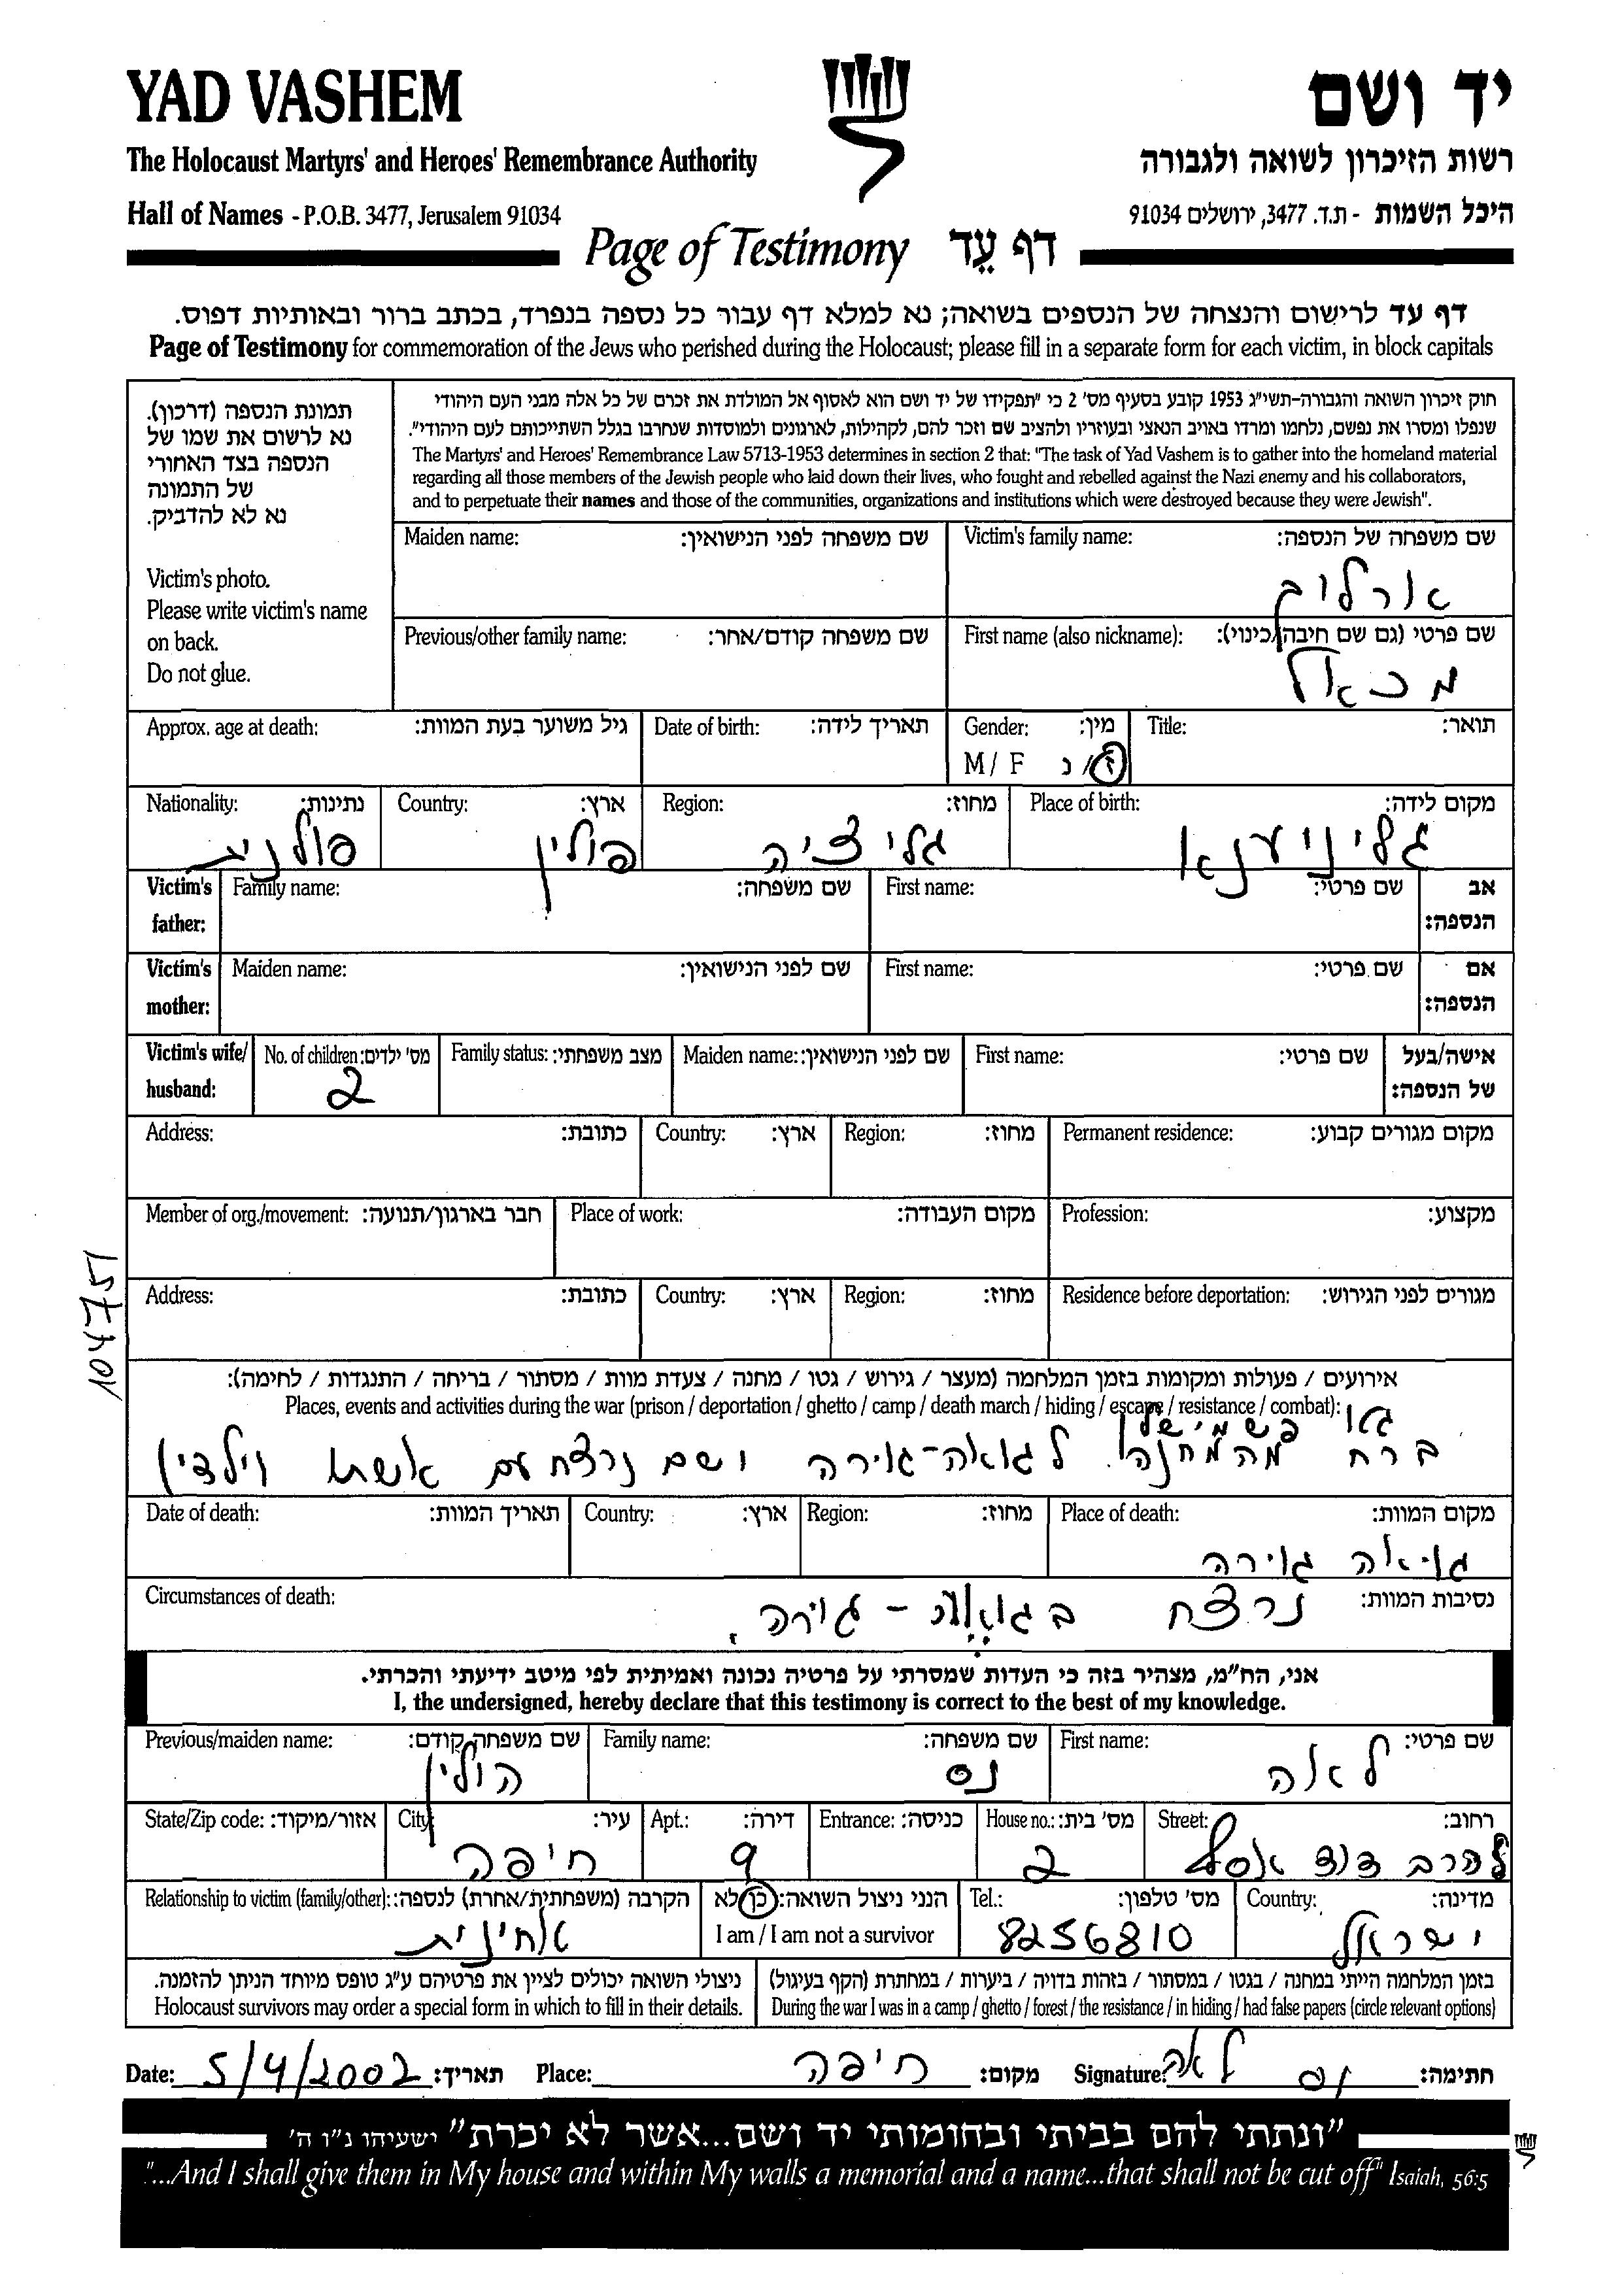 YAD VASHEM
יד ושם
The Holocaust Martyrs' and Heroes' Remembrance Authority
רשות הזיכרון לשואה ולגבורה
Hall of Names - P.O.B. 3477, Jerusalem 91034
היכל השמות - ת.ד. 3477, ירושלים 91034
Page of Testimony דף עֵד
דף עד לרישום והנצחה של הנספים בשואה; נא למלא דף עבור כל נספה בנפרד, בכתב ברור ובאותיות דפוס.
Page of Testimony for commemoration of the Jews who perished during the Holocaust; please fill in a separate form for each victim, in block capitals
תמונת הנספה (דרכון).
נא לרשום את שמו של
הנספה בצד האחורי
של התמונה
נא לא להדביק.
Victim's photo.
Please write victim's name
on back.
Do not glue.
חוק זיכרון השואה והגבורה-תשי"ג 1953 קובע בסעיף מס' 2 כי "תפקידו של יד ושם הוא לאסוף אל המולדת את זכרם של כל אלה מבני העם היהודי
שנפלו ומסרו את נפשם, נלחמו ומרדו באויב הנאצי ובעוזריו ולהציב שם וזכר להם, לקהילות, לארגונים ולמוסדות שנחרבו בגלל השתייכותם לעם היהודי".
The Martyrs' and Heroes' Remembrance Law 5713-1953 determines in section 2 that: "The task of Yad Vashem is to gather into the homeland material
regarding all those members of the Jewish people who laid down their lives, who fought and rebelled against the Nazi enemy and his collaborators,
and to perpetuate their names and those of the communities, organizations and institutions which were destroyed because they were Jewish".
Victim's family name: שם משפחה של הנספה:
Maiden name: שם משפחה לפני הנישואין:
אורלוף
First name (also nickname): שם פרטי (גם שם חיבה/כינוי):
Previous/other family name: שם משפחה קודם/אחר:
מכאל
Title: תואר:
Gender: מין:
Date of birth: תאריך לידה:
Approx. age at death: גיל משוער בעת המוות:
M / F ז/נ
Place of birth: מקום לידה:
Region: מחוז:
Country: ארץ:
Nationality: נתינות:
גליניענא
גליציה
פולין
פולנית
Victim's father: אב הנספה:
First name: שם פרטי:
Family name: שם משפחה:
Victim's mother: אם הנספה:
First name: שם פרטי:
Maiden name: שם לפני הנישואין:
Victim's wife/ husband: אישה/בעל של הנספה:
First name: שם פרטי:
Maiden name: שם לפני הנישואין:
Family status: מצב משפחתי:
No. of children: מס' ילדים:
2
Permanent residence: מקום מגורים קבוע:
Region: מחוז:
Country: ארץ:
Address: כתובת:
Profession: מקצוע:
Place of work: מקום העבודה:
Member of org./movement: חבר בארגון/תנועה:
Residence before deportation: מגורים לפני הגירוש:
Region: מחוז:
Country: ארץ:
Address: כתובת:
104751
אירועים / פעולות ומקומות בזמן המלחמה (מעצר / גירוש / גטו / מחנה / צעדת מוות / מסתור / בריחה / התנגדות / לחימה):
Places, events and activities during the war (prison / deportation / ghetto / camp / death march / hiding / escape / resistance / combat):
ברח מהמחנה לגואה-גוירה ושם נרצח עם אשתו וילדין
Place of death: מקום המוות:
Region: מחוז:
Country: ארץ:
Date of death: תאריך המוות:
גויאלה גוירה
Circumstances of death: נסיבות המוות:
נרצח - גוירה
אני, הח"מ, מצהיר בזה כי העדות שמסרתי על פרטיה נכונה ואמיתית לפי מיטב ידיעתי והכרתי.
I, the undersigned, hereby declare that this testimony is correct to the best of my knowledge.
First name: שם פרטי:
Family name: שם משפחה:
Previous/maiden name: שם משפחה קודם:
לאה
נס
הולין
Street: רחוב:
House no.: מס' בית:
Entrance: כניסה:
Apt.: דירה:
City: עיר:
State/Zip code: אזור/מיקוד:
הרב דוד אסף
2
9
חיפה
Country: מדינה:
Tel.: מס' טלפון:
הנני ניצול השואה: כן/לא
I am / I am not a survivor
Relationship to victim (family/other): הקרבה (משפחתית/אחרת) לנספה:
ישראל
8256810
אחינית
בזמן המלחמה הייתי במחנה / בגטו / במסתור / בזהות בדויה / ביערות / במחתרת (הקף בעיגול)
During the war I was in a camp / ghetto / forest / the resistance / in hiding / had false papers (circle relevant options)
ניצולי השואה יכולים לציין את פרטיהם ע"ג טופס מיוחד הניתן להזמנה.
Holocaust survivors may order a special form in which to fill in their details.
Date: 5/4/2002 תאריך: Place: חיפה מקום: Signature: לאה נס חתימה:
"ונתתי להם בביתי ובחומותי יד ושם...אשר לא יכרת" ישעיהו נ"ו ה'
"...And I shall give them in My house and within My walls a memorial and a name...that shall not be cut off" Isaiah, 56:5